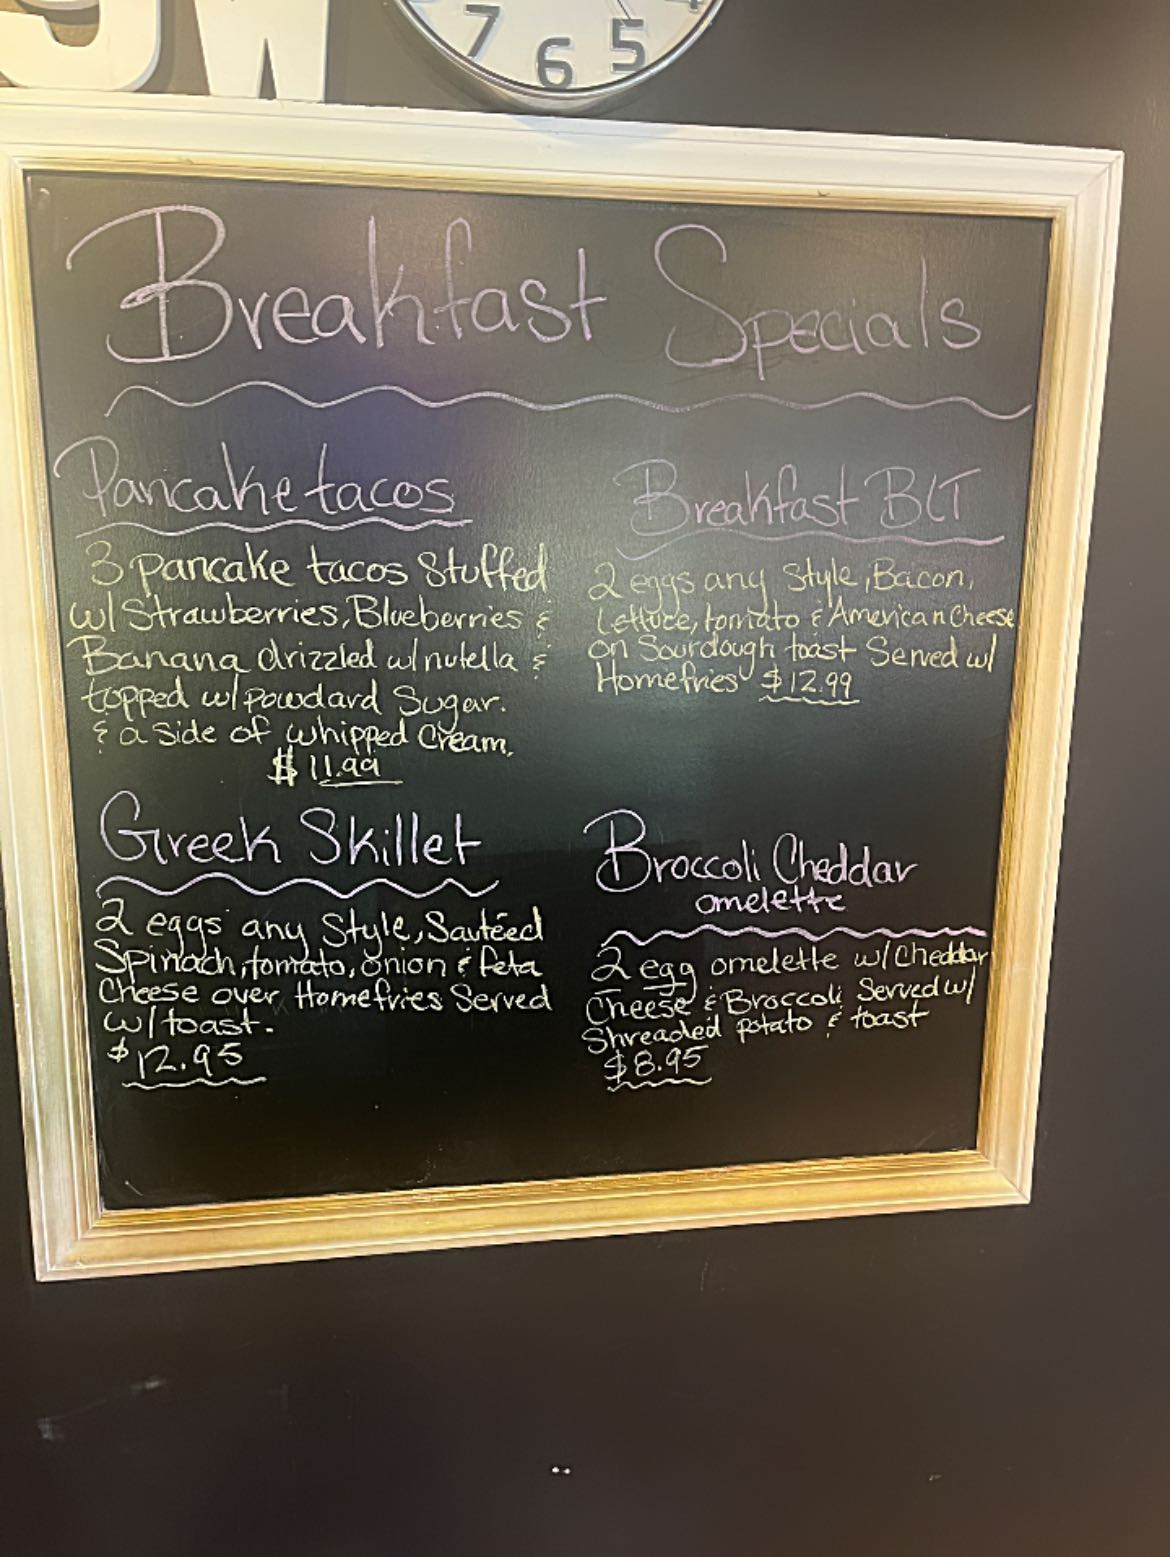 SW
7 6 5 4
Breakfast Specials
Pancake tacos
3 pancake tacos Stuffed
w/ Strawberries, Blueberries &
Banana drizzled w/ nutella &
topped w/ powdard Sugar.
& a side of whipped Cream.
$ 11.99
Breakfast BLT
2 eggs any Style, Bacon,
Lettuce, tomato & American Cheese
on Sourdough toast Served w/
Homefries $12.99
Greek Skillet
2 eggs any Style, Sautéed
Spinach, tomato, onion & feta
Cheese over Homefries Served
w/ toast.
$12.95
Broccoli Cheddar
omelette
2 egg omelette w/ Cheddar
Cheese & Broccoli Served w/
Shreaded potato & toast
$8.95